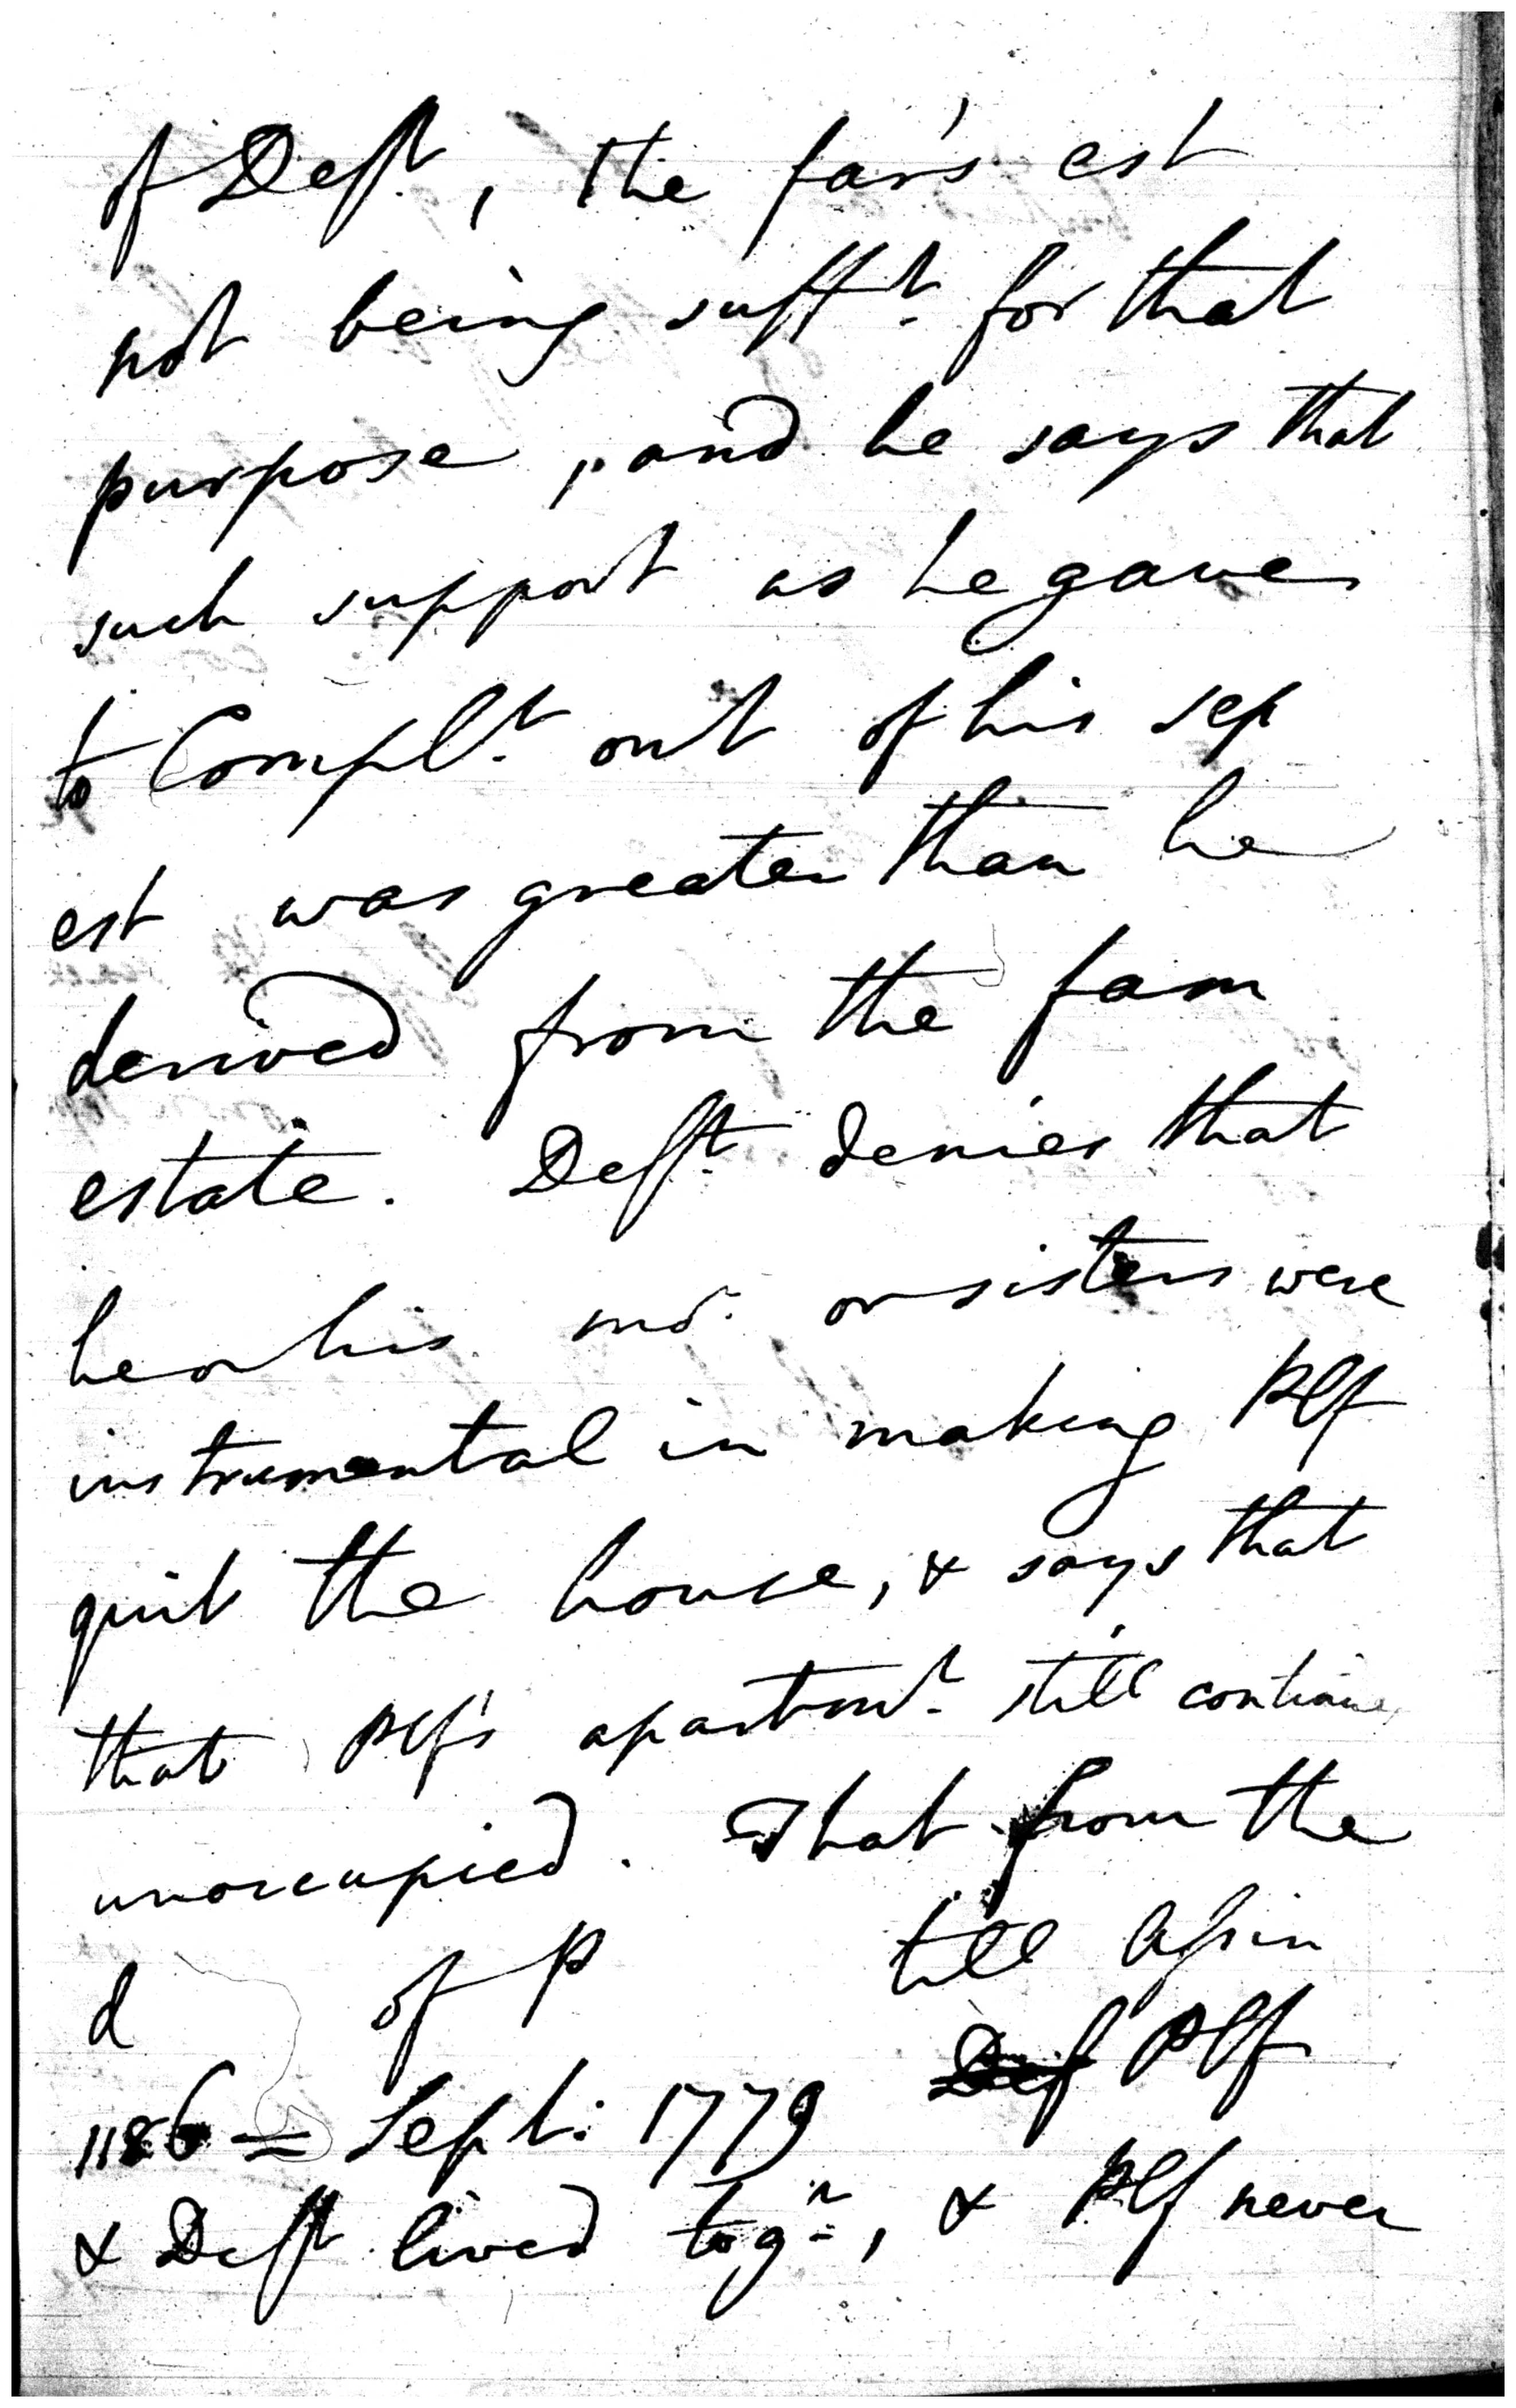 of Deft, the fam's est
not being sufft. for that
purpose, and he says that
such support as he gave
to Complt. out of his sep
est was greater than he
derived from the fam
estate. Deft. denies that
he or his mor. or sisters were
instrumental in making Plf
quit the house, & says that
that Plf's apartmt. still continues
unoccupied. That from the
d of P till Assin
1186 = Sept: 1779 Def Plf
& Deft lived togr., & Plf never